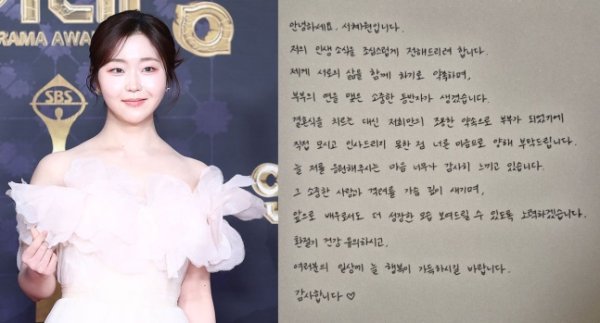 연대
DRAMA AWA
SBS
안녕하세요. 서혜원입니다.
저의 인생 소식을 조심스럽게 전해드리려 합니다.
제게 서로의 삶을 함께 하기로 약속하며,
부부의 연을 맺은 소중한 동반자가 생겼습니다.
결혼식을 치르는 대신 저희만의 조용한 약속으로 부부가 되었기에
직접 모시고 인사드리지 못한 점 너른 마음으로 양해 부탁드립니다.
늘 저를 응원해주시는 마음 너무나 감사히 느끼고 있습니다.
그 소중한 사랑과 격려를 가슴 깊이 새기며,
앞으로 배우로서도 더 성장한 모습 보여드릴 수 있도록 노력하겠습니다.
환절기 건강 유의하시고,
여러분의 일상에 늘 행복이 가득하시길 바랍니다.
감사합니다 ♡